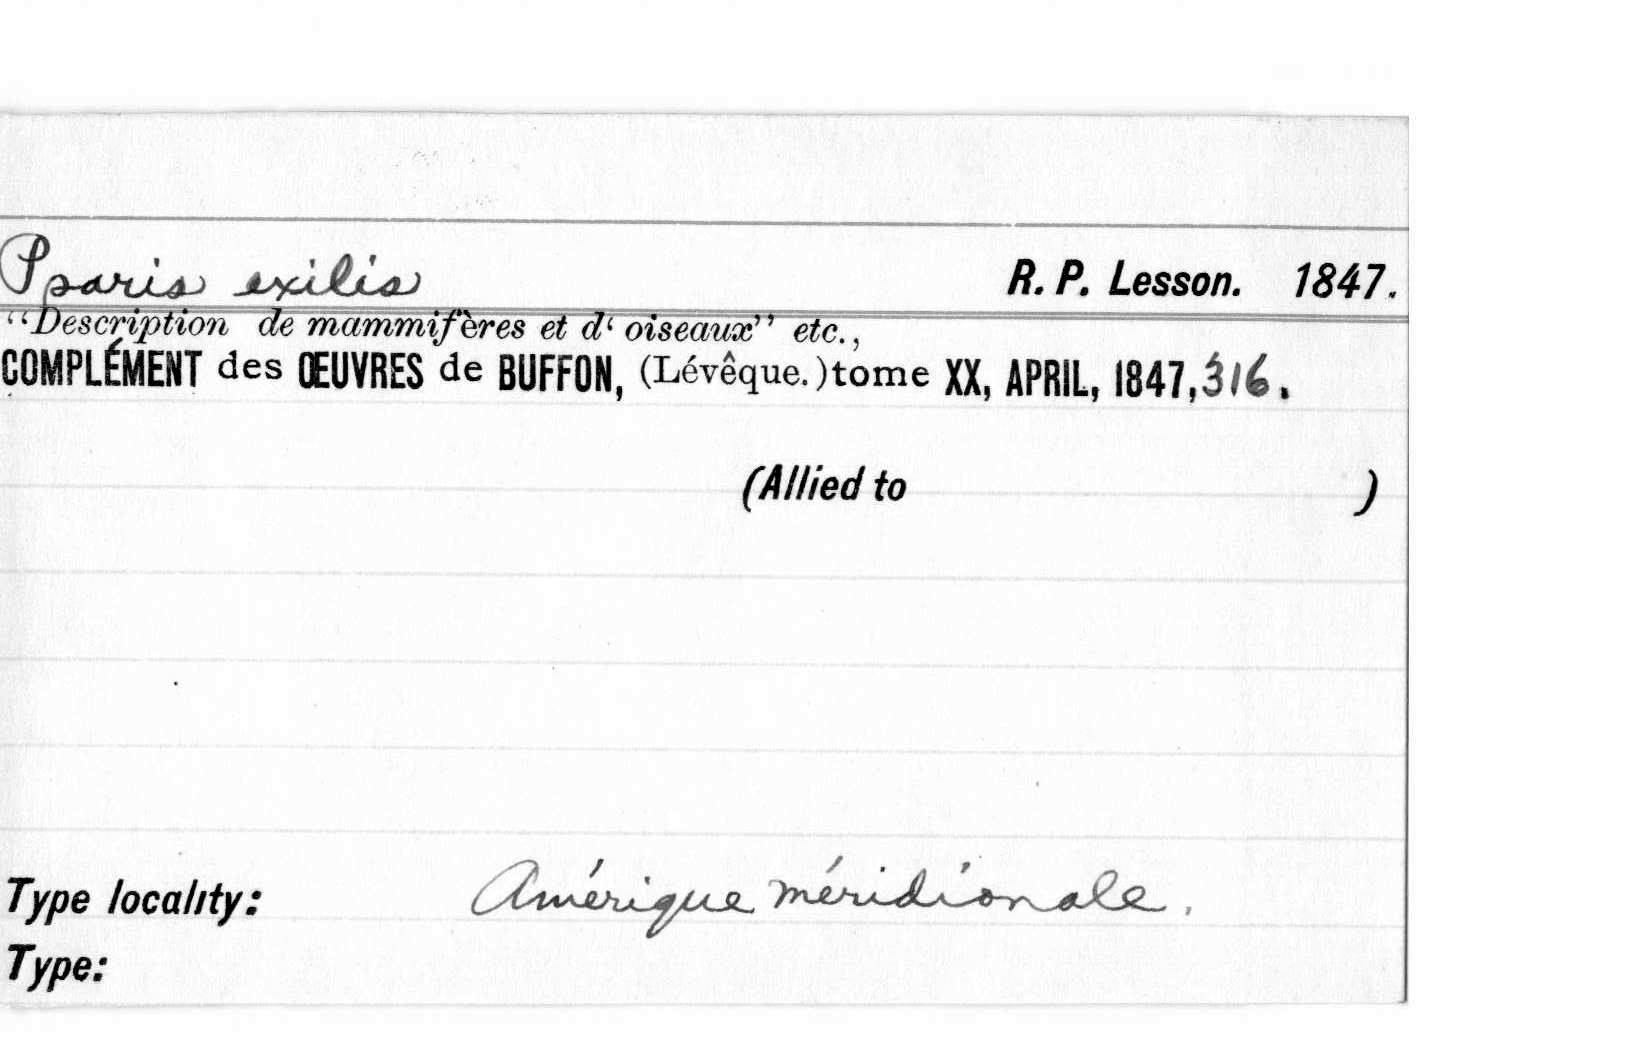 Psaris exilis R. P. Lesson. 1847.
“Description de mammifères et d‘ oiseaux” etc.,
COMPLÉMENT des ŒUVRES de BUFFON, (Lévêque.) tome XX, APRIL, 1847, 316.
(Allied to )
Type locality: Amérique méridionale.
Type: